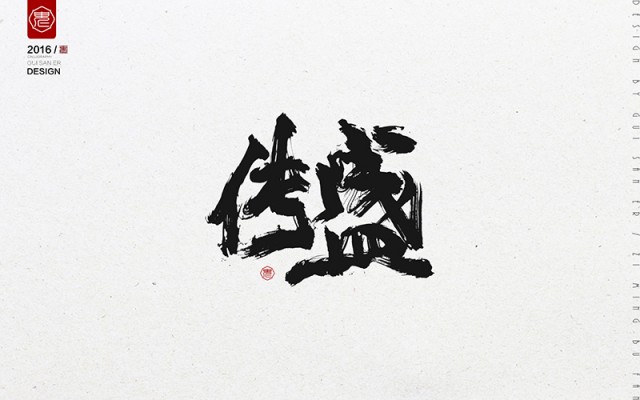 2016 /
CALLIGRAPHY
GUI SAN ER
DESIGN
传盛
DESIGN BY GUI SAN ER / ZI MING BU FAN